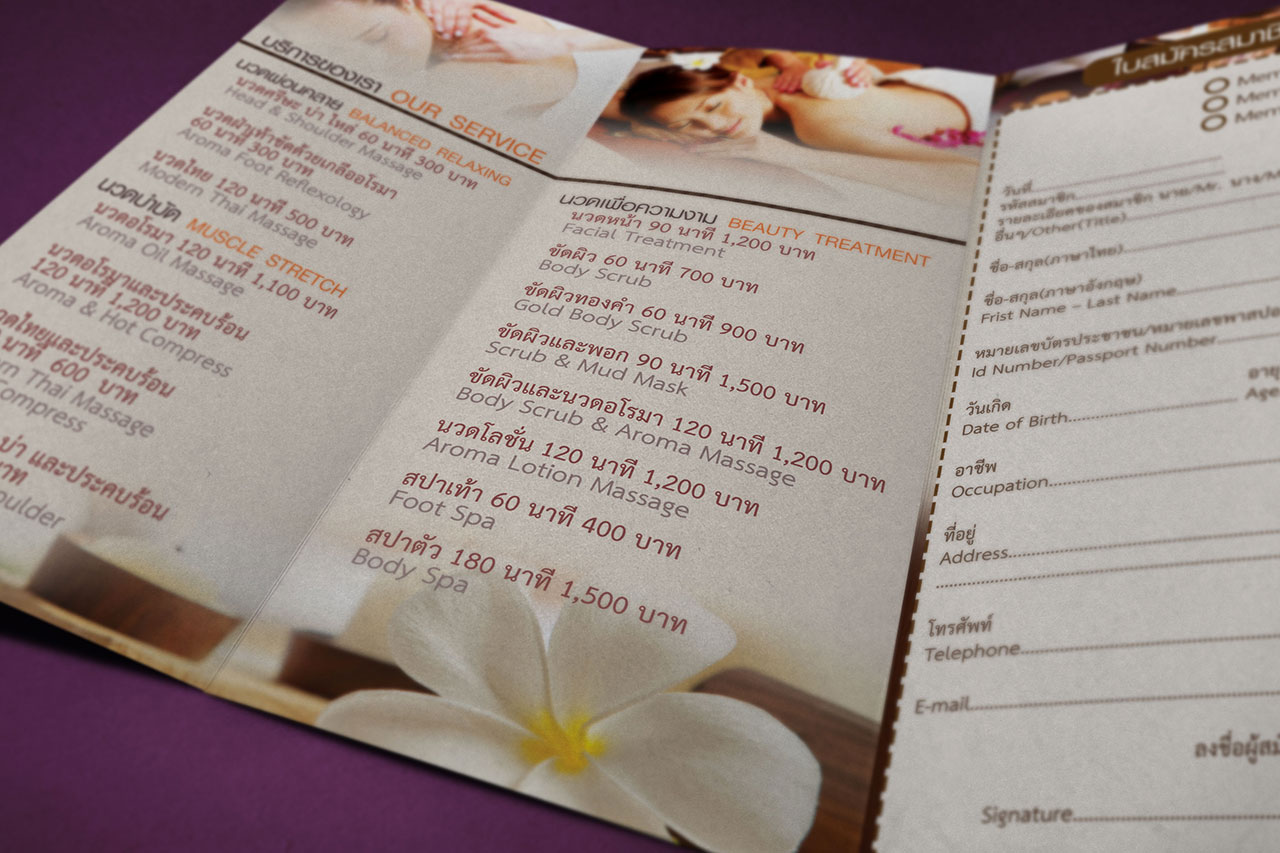 บริการของเรา OUR SERVICE
นวดผ่อนคลาย BALANCED RELAXING
นวดศรีษะ บ่า ไหล่ 60 นาที 300 บาท
Head & Shoulder Massage
นวดฝ่าเท้าขัดด้วยเกลืออโรมา
60 นาที 300 บาท
Aroma Foot Reflexology
นวดไทย 120 นาที 500 บาท
Modern Thai Massage
นวดบำบัด MUSCLE STRETCH
นวดอโรมา 120 นาที 1,100 บาท
Aroma Oil Massage
นวดอโรมาและประคบร้อน
120 นาที 1,200 บาท
Aroma & Hot Compress
วดไทยและประคบร้อน
นาที 600 บาท
rn Thai Massage
Compress
บ่า และประคบร้อน
บาท
oulder
นวดเพื่อความงาม BEAUTY TREATMENT
นวดหน้า 90 นาที 1,200 บาท
Facial Treatment
ขัดผิว 60 นาที 700 บาท
Body Scrub
ขัดผิวทองคำ 60 นาที 900 บาท
Gold Body Scrub
ขัดผิวและพอก 90 นาที 1,500 บาท
Scrub & Mud Mask
ขัดผิวและนวดอโรมา 120 นาที 1,200 บาท
Body Scrub & Aroma Massage
นวดโลชั่น 120 นาที 1,200 บาท
Aroma Lotion Massage
สปาเท้า 60 นาที 400 บาท
Foot Spa
สปาตัว 180 นาที 1,500 บาท
Body Spa
ใบสมัครสมาชิ
Mem
Mem
Mem
วันที่
รหัสสมาชิก
รายละเอียดของสมาชิก นาย/Mr. นาง/M
อื่นๆ/Other(Title)
ชื่อ-สกุล(ภาษาไทย)
ชื่อ-สกุล(ภาษาอังกฤษ)
Frist Name – Last Name
หมายเลขบัตรประชาชน/หมายเลขพาสปอ
Id Number/Passport Number
วันเกิด
อายุ
Date of Birth
Age
อาชีพ
Occupation
ที่อยู่
Address
โทรศัพท์
Telephone
E-mail
ลงชื่อผู้สมั
Signature